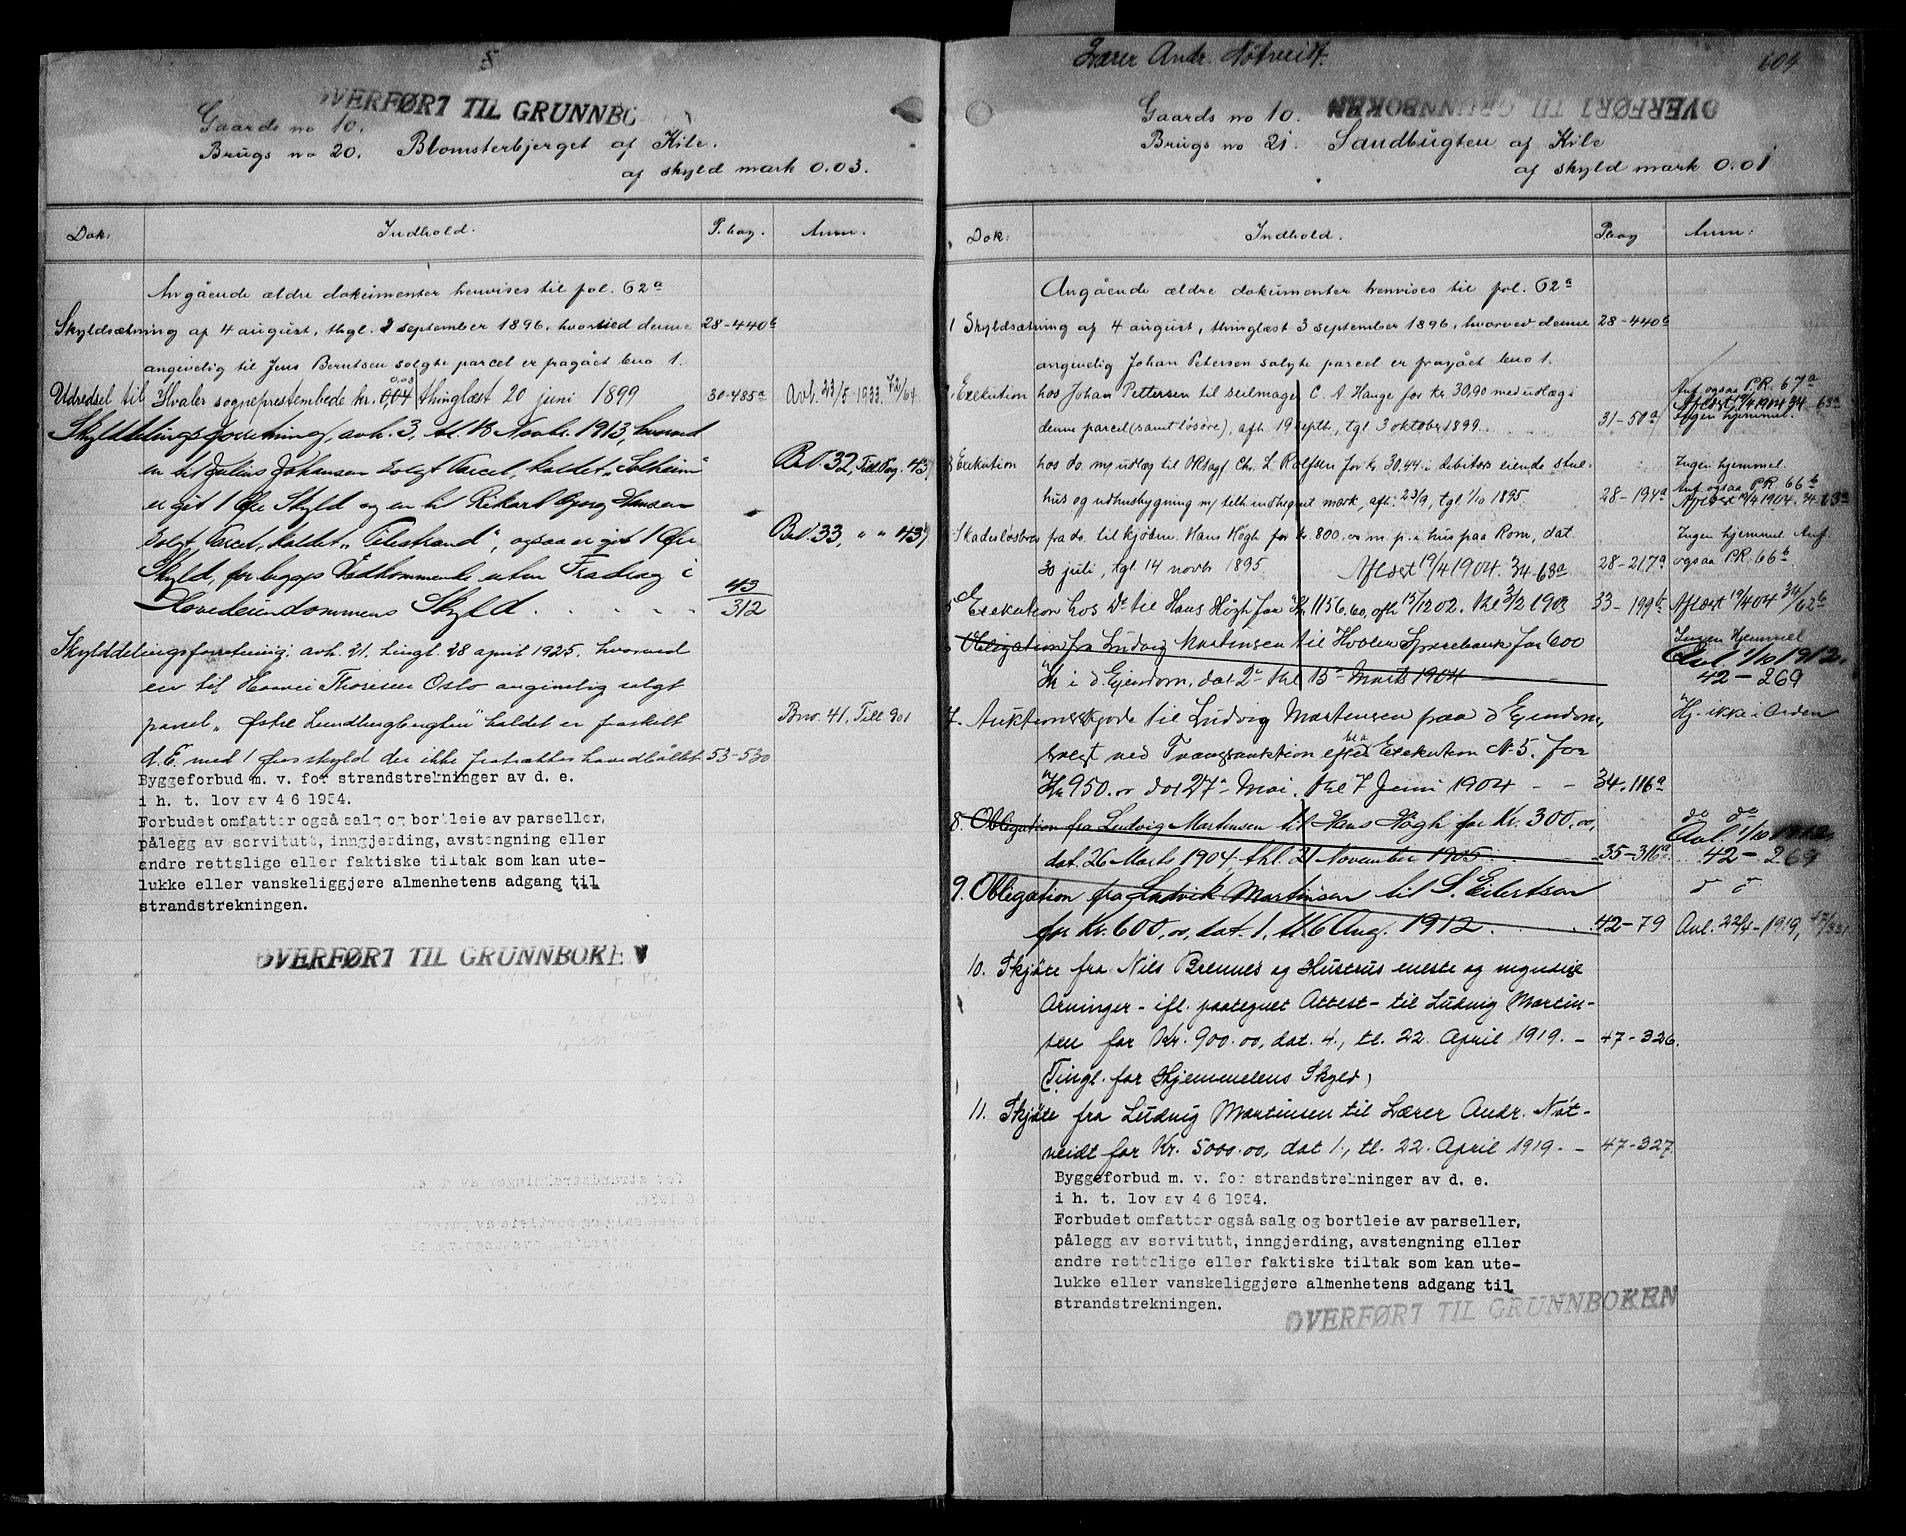 8
OVERFØRT TIL GRUNNBO
Gaards no 10.
Brugs no 20. Blomsterbjerget af Kile.
af skyld mark 0.03.
Dok: Indhold. P. bog. Anm.
Angående ældre dokumenter henvises til fol. 62a
Skyldsætning af 4 august, thgl. 3 september 1896, hvorved denne 28-440b
angivelig til Jens Berntsen solgte parcel er fragået bno 1.
Udredsel til Hvaler sogneprestembede kr. 0,04 0,03 thinglæst 20 juni 1899 30-485a Avl. 23/5 1933 72/64
Skylddelingsforretning, avh. 3, tl. 18 Novbr. 1913, hvorved
en til Julius Johansen solgt Parcel, kaldet „Solheim" Br.No. 32, Till.Fog. 437
er git 1 Øre Skyld og en til Rikart Georg Hansen
solgt Parcel, kaldet „Tilestrand", ogsaa er git 1 Øre Br.No. 33, „ „ 437
Skyld, for begges Vedkommende uten Fradrag i
Hovedeiendommens Skyld. . . . . 43/312
Skylddelingsforretning: avh. 21. tingl. 28 april 1925. hvorved
en til Thoresen Oslo angivelig solgt
parsel „ Østre Lundbugten" kaldet er fraskilt Bno. 41. Till 901
d. E. med 1 øres skyld der ikke fratrættes hovedbøllet. 53-530
Byggeforbud m. v. for strandstrekninger av d. e.
i h. t. lov av 4 6 1954.
Forbudet omfatter også salg og bortleie av parseller,
pålegg av servitutt, inngjerding, avstengning eller
andre rettslige eller faktiske tiltak som kan ute-
lukke eller vanskeliggjøre almenhetens adgang til
strandstrekningen.
OVERFØRT TIL GRUNNBOKEN
Lærer Andr. Nøtveidt. 604
OVERFØRT TIL GRUNNBOKEN
Gaards no 10.
Brugs no 21. Sandbugten af Kile
af skyld mark 0.01
Dok: Indhold. P.bog Anm:
Angående ældre dokumenter henvises til fol. 62a
1 Skyldsætning af 4 august, thinglæst 3 september 1896, hvorved denne 28-440b
angivelig Johan Petersen solgte parcel er fragået bno 1.
2. Exekution hos Johan Pettersen til seilmager C. A. Hauge for kr 30,90 med udlæg i Anf. ogsaa P.R. 67a
denne parcel (samt løsøre), afh. 19 septb., tgl. 3 oktober 1899. 31-50a Aflæst 19/4 1904 34-63a Ingen hjemmel.
3 Exekution hos do. m/ udlæg til Oksagf. Chr. L. Rolfsen for kr 30.44 i debitors eiende stue- Ingen hjemmel.
hus og udhusbygning m/ tilh. indhegnet mark, afh. 23/9, tgl 1/10 1895. 28-194a Anf. ogsaa P.R. 66b Aflæst 19/4 1904. 34-63a
Skadesløsbrev fra do. til kjøbm. Hans Høgh for kr. 800.00 m. p. i hus paa Rom, dat. Ingen hjemmel. Anf.
30 juli, tgl 14 novbr 1895 Aflæst 19/4 1904. 34-63a 28-217a ogsaa P.R. 66b
5 Exekution hos Do til Hans Høgh for Kr 1156.60, afh 15/12 02. thl 3/2 1903 33-199b Aflæst 19/4 04 34/62b
Obligation fra Ludvig Martinsen til Hvaler Sparebank for 600 Ingen Hjemmel
Kr i d. Ejendom, dat 2. thl 15. Marts 1904 Avl. 1/10 1912. 42-269
7. Auktionsskjøde til Ludvig Martensen paa d Ejendom, Hj. ikke i Orden
solgt ved Tvangsauktion efter bl.a. Exekution No 5. for
Kr 950.00 dat 27. Mai, thl 7 Juni 1904 - - 34-116a
8. Obligation fra Ludvig Martinsen til Hans Høgh for Kr. 300,00, do do
dat. 26 Marts 1904, thl. 21 November 1905. 35-316a. Avl. 1/10 1912 42-269
9. Obligation fra Ludvik Martinsen til S. Eilertsen d d
for Kr. 600,00, dat. 1, tl. 6 Aug. 1912. 42-79 Avl. 22/4-1919, 47/331
10. Skjøte fra Nils Brennes og Hustrus eneste og myndige
Arvinger - ifl. paategnet Attest - til Ludvig Martin-
sen for Kr. 900.00, dat. 4., tl. 22. April 1919. - 47-326.
(Tingl. for Hjemmelens Skyld)
11. Skjøte fra Ludvig Martinsen til Lærer Andr. Nøt-
veidt for Kr. 5000.00, dat 1., tl. 22. April 1919. - 47-327
Byggeforbud m. v. for strandstrekninger av d. e.
i h. t. lov av 4 6 1954.
Forbudet omfatter også salg og bortleie av parseller,
pålegg av servitutt, inngjerding, avstengning eller
andre rettslige eller faktiske tiltak som kan ute-
lukke eller vanskeliggjøre almenhetens adgang til
strandstrekningen.
OVERFØRT TIL GRUNNBOKEN